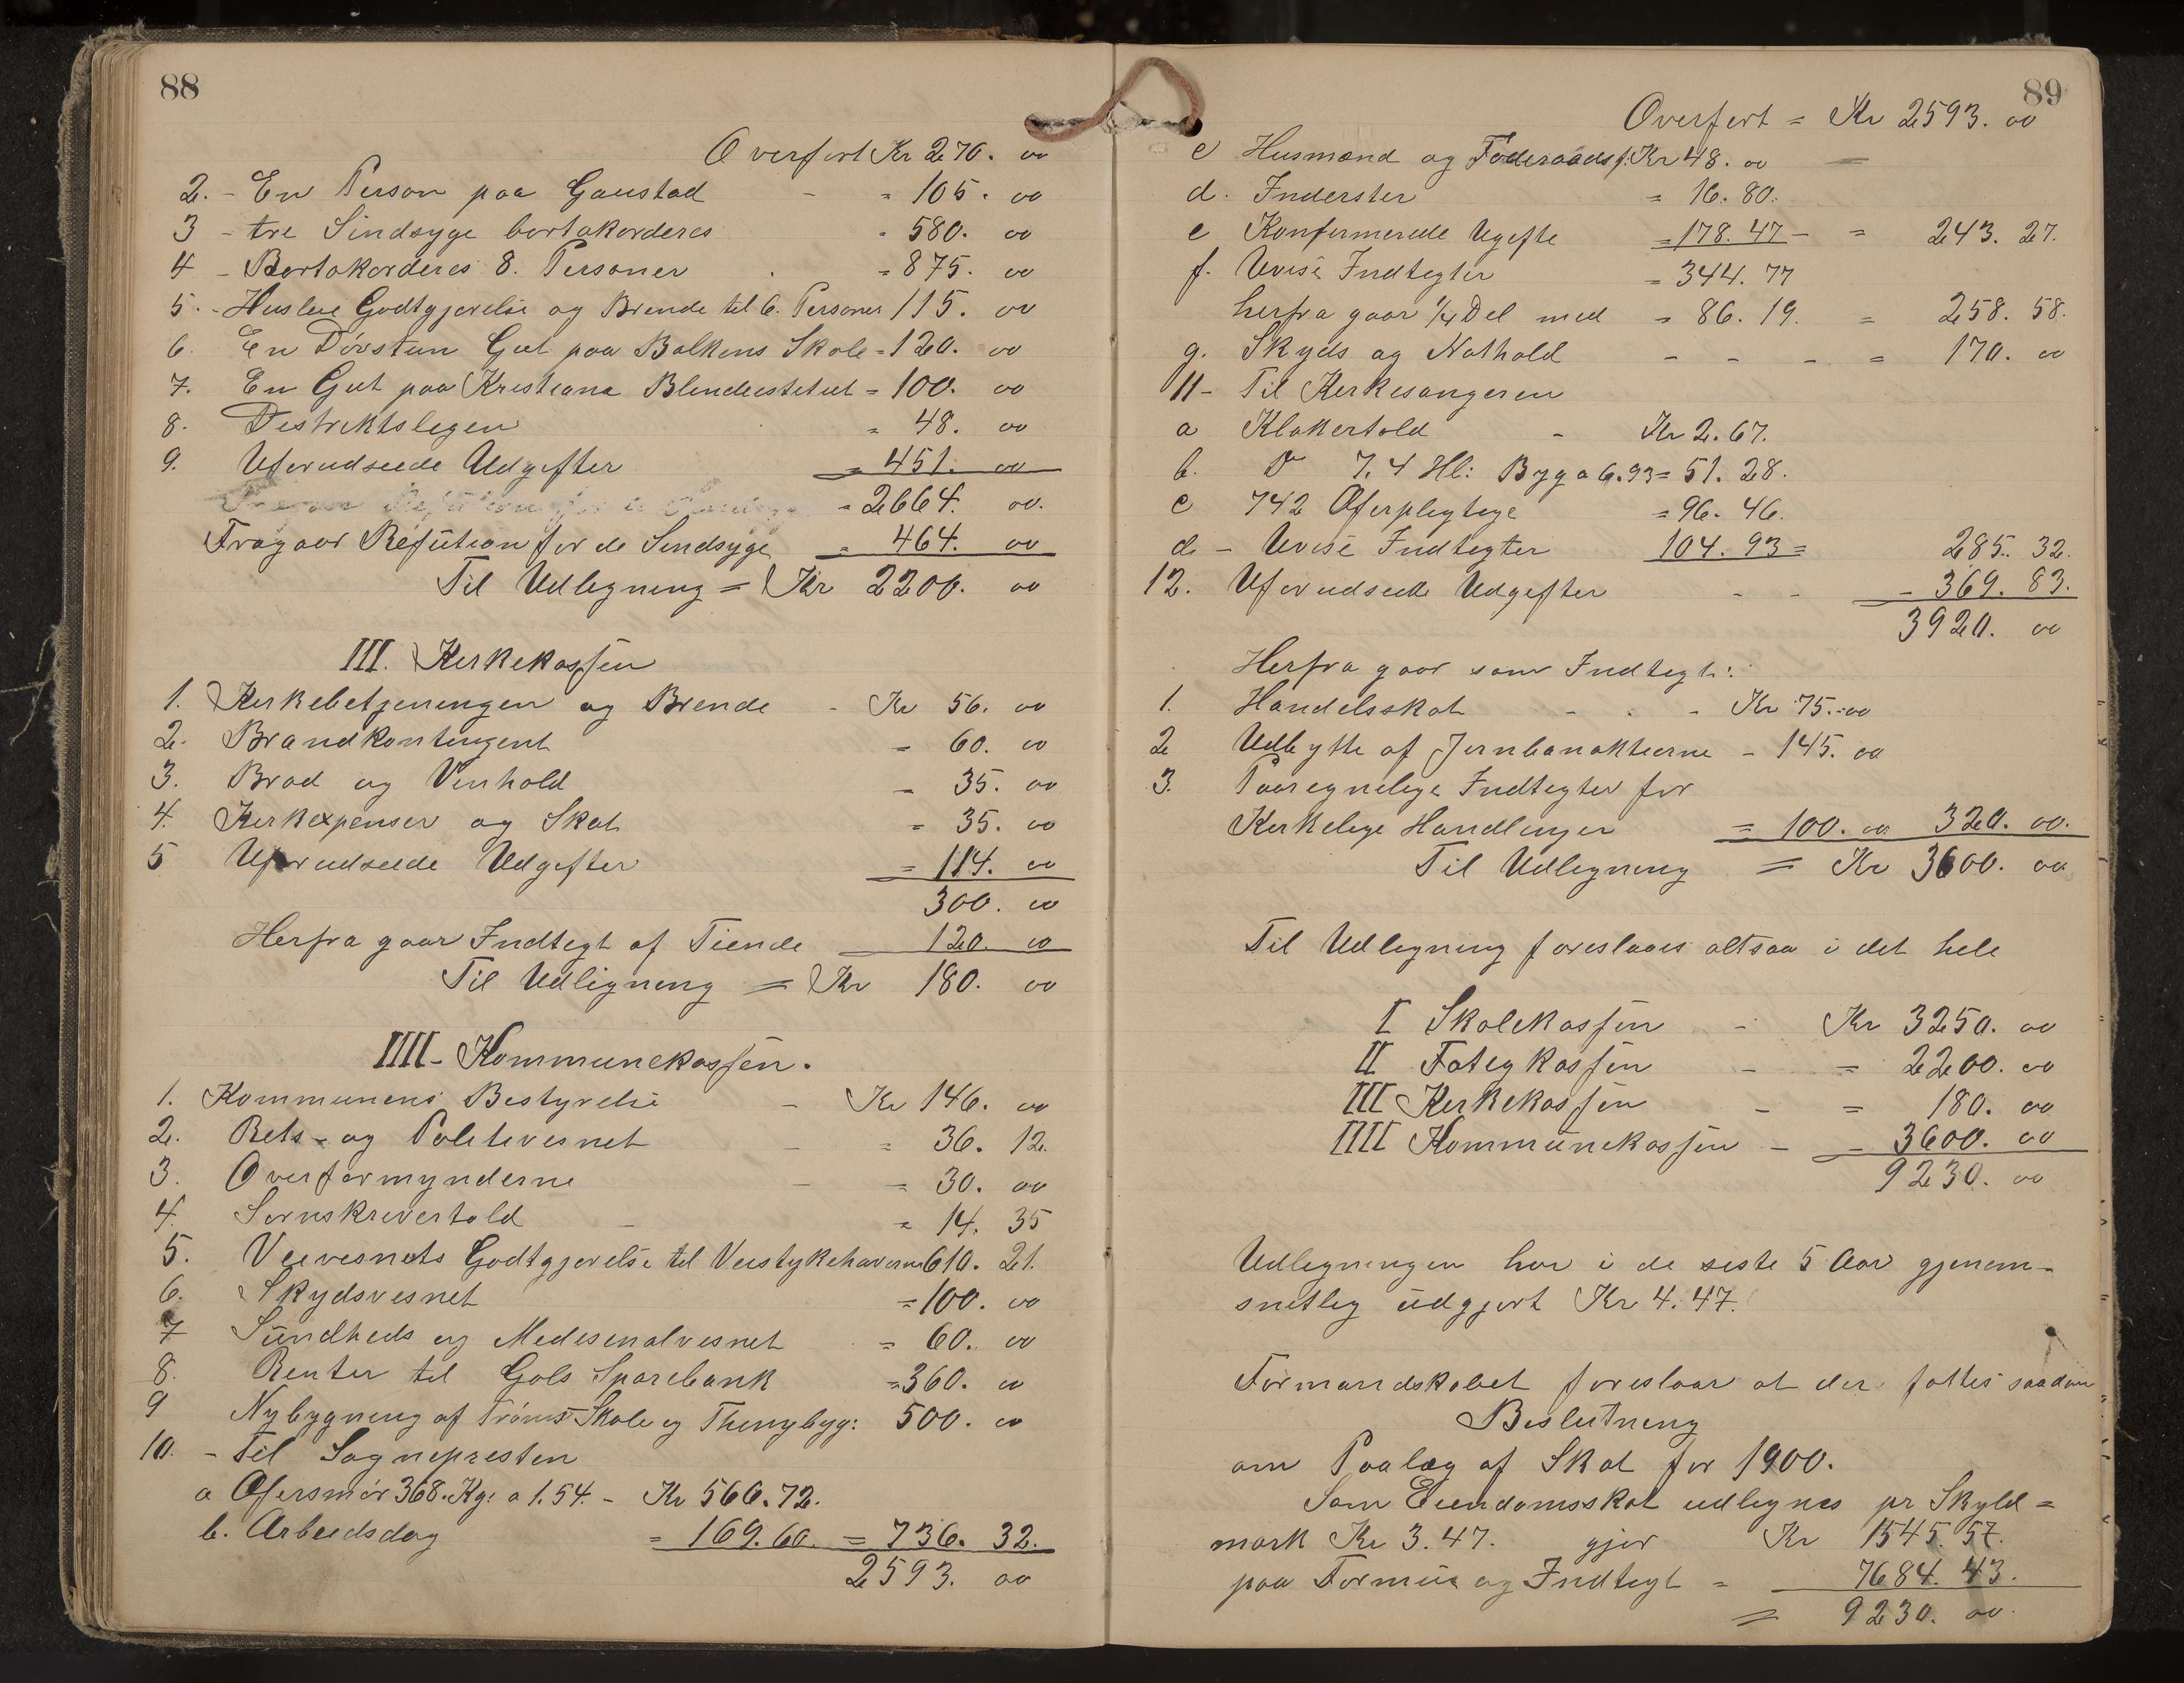 88
Overfort Kr 270. 00
2. - En Person paa Gaustad - = 105. 00
3 - tre Sindsyge bortakorderes = 580. 00
4 - Bortakorderes 8. Personer = 875. 00
5. - Husleie Godtgjørelse og Brende til 6. Personer 115. 00
6. En Døvstum Gut paa Balkens Skole = 120. 00
7. En Gut paa Kristiana Blindeistetut = 100. 00
8. Destriktslegen = 48. 00
9. Uforudseede Udgifter = 451. 00
= 2664. 00.
Fragaar Refution for de Sindsyge = 464. 00
Til Udlegning = Kr 2200. 00
III. Kerkekassen
1. Kerkebetjeningen og Brende - Kr 56. 00
2. Brandkontingent = 60. 00
3. Brød og Vinhold = 35. 00
4. Kerkexpenser og Skat = 35. 00
5 Uforudseede Udgifter = 114. 00
300. 00
Herfra gaar Indtegt af Tiende 120. 00
Til Udligning = Kr 180. 00
IIII - Kommunekassen.
1. Kommunens Bestyrelse - Kr 146. 00
2. Rets- og Politivesnet - = 36. 12.
3. Overformynderne - = 30. 00
4. Sornskrivertold - = 14. 35
5. Veivesnets Godtgjørelse til Veistykehaverne 610. 21.
6. Skydsvesnet = 100. 00
7 Sundheds og Medesenalvesnet = 60. 00
8. Renter til Gols Sparebank = 360. 00
9 Nybygning af Trøms Skole og Thenybygg: 500. 00
10. - Til Sognepresten
a Ofersmør 368. Kg. a 1.54. - Kr 566.72.
b. Arbeidsdag = 169.60. = 736. 32.
2593. 00
89
Overfert = Kr 2593. 00
c Husmænd og Føderaadsf. Kr 48. 00
d. Inderster = 16. 80.
e Konfirmerede Ugefte = 178. 47 - = 243. 27.
f. Uvise Indtegter = 344. 77
herfra gaar 1/4 Del med = 86. 19. = 258. 58.
g. Skyds og Nathold - - - = 170. 00
11 - Til Kerkesangeren
a Klokertold - Kr 2. 67.
b. Do 7,4 Hl: Byg a 6.93 = 51. 28.
c 742 Oferplegtige = 96. 46.
d - Uvise Indtegter 104. 93 = 285. 32.
12. Uforudseede Udgifter - - - 369. 83.
3920. 00
Herfra gaar som Indtegt:
1. Handelsskat - - - Kr 75. 00
2 Udbytte af Jernbanakteerne - 145. 00
3. Paaregnelige Indtegter for
Kerkelige Handlinger = 100. 00 320. 00.
Til Udlegning = Kr 3600. 00
Til Udlegning foreslaaes altsaa i det hele
I Skolekassen - Kr 3250. 00
II Fategkassen - = 2200. 00
III Kerkekassen - = 180. 00
IIII Kommunekassen - = 3600. 00
9230. 00
Udlegningen har i de siste 5 Aar gjenem-
snitlig udgjort Kr 4. 47.
Formandskabet foreslaar at der fattes saadan
Beslutning
om Paalæg af Skat for 1900.
Som Eiendomsskat udlignes pr Skyld =
mark Kr 3. 47. gjør Kr 1545. 57.
paa Formue og Indtegt = 7684. 43.
= 9230. 00.